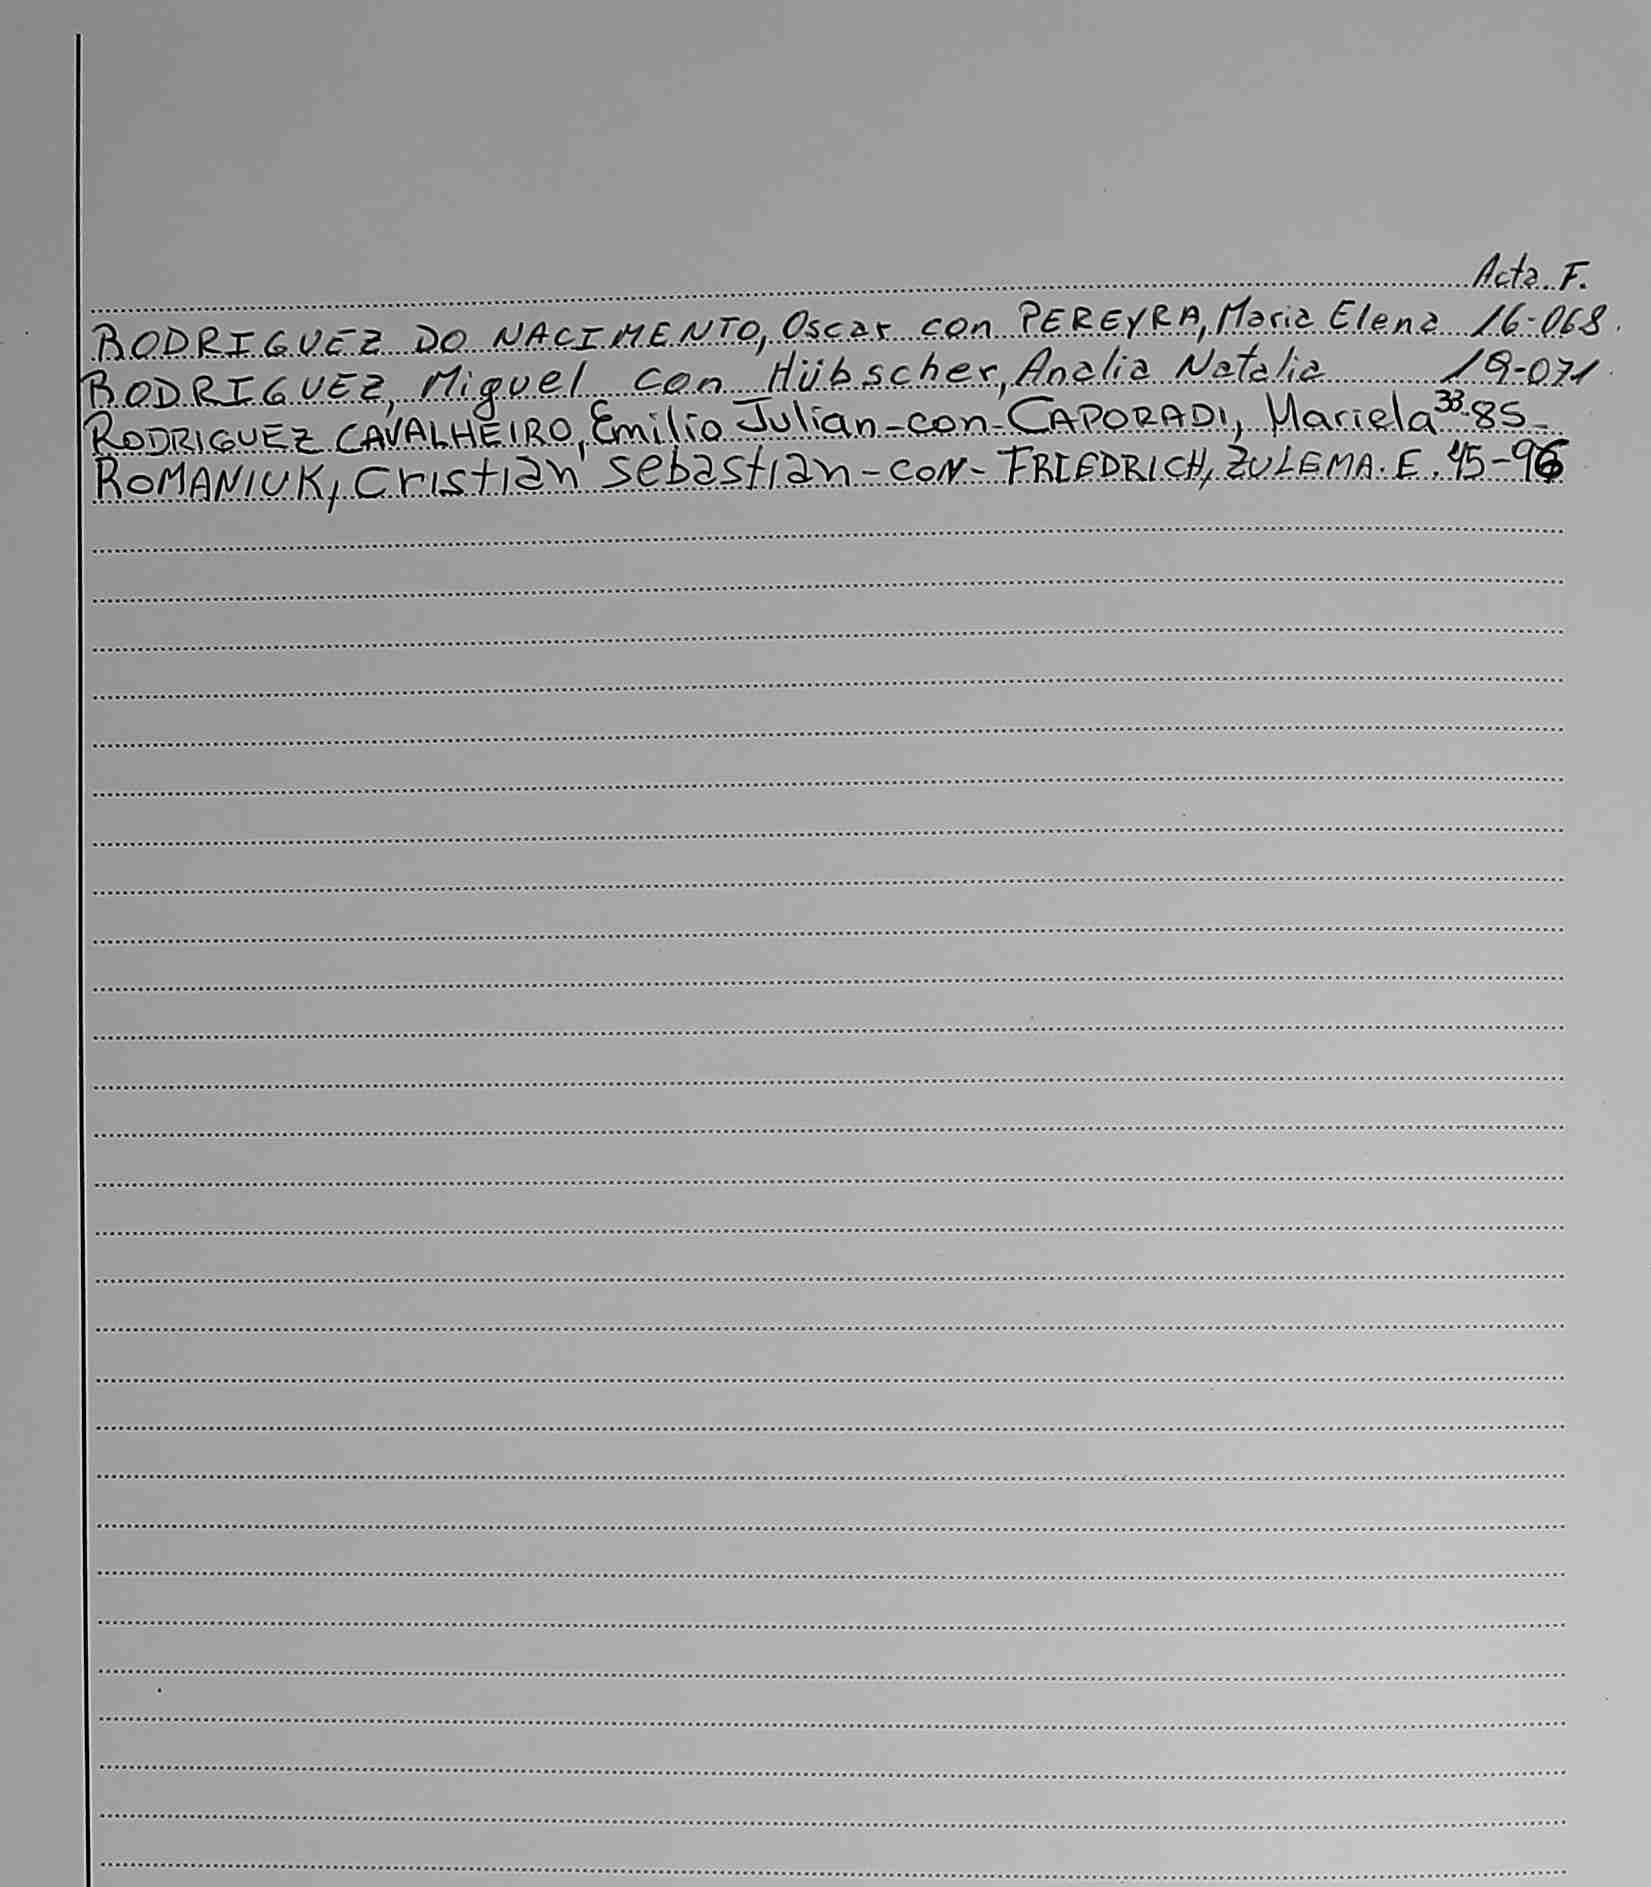 Acta F.
RODRIGUEZ DO NACIMENTO, Oscar con PEREYRA, Maria Elena 16-068.
RODRIGUEZ, Miguel con Hübscher, Analia Natalia 19-071.
RODRIGUEZ CAVALHEIRO, Emilio Julian-con-CAPORADI, Mariela 33-85-
ROMANIUK, Cristian Sebastian-con-FRIEDRICH, ZULEMA. E. 45-96